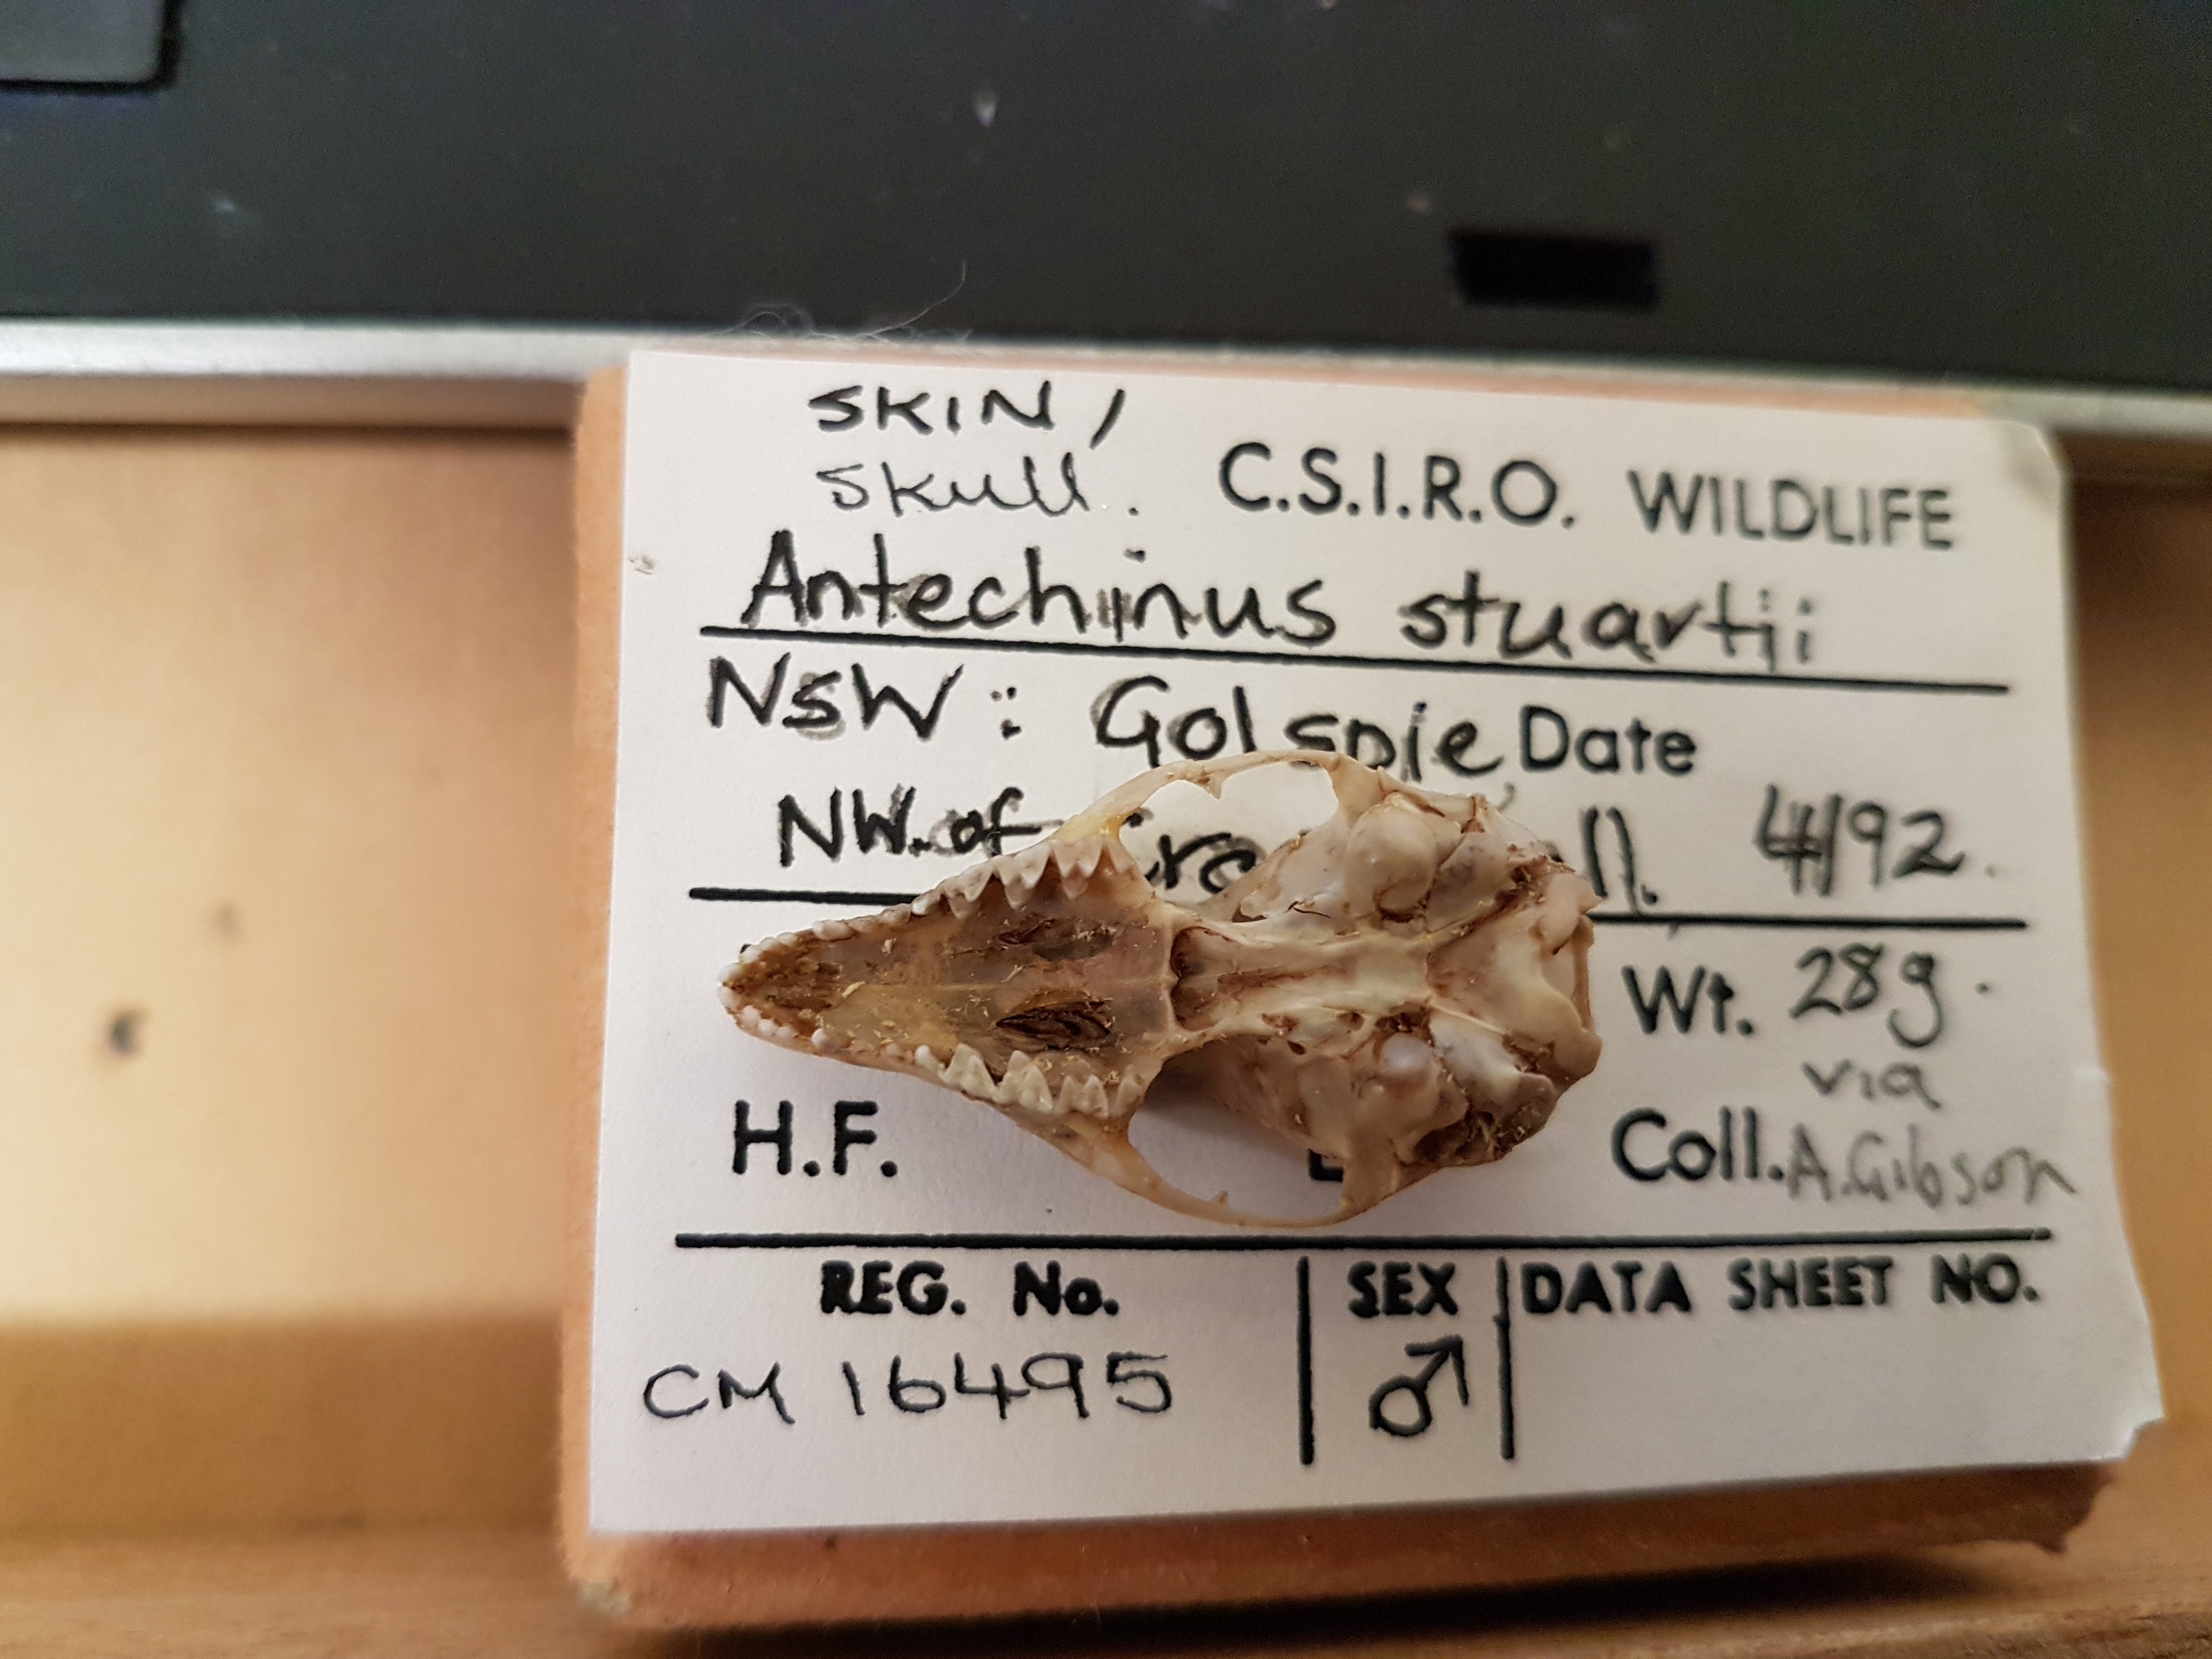 SKIN/
Skull. C.S.I.R.O. WILDLIFE
Antechinus stuartii
NSW: Golspie Date
NW. of 4/92.
Wt. 28g.
via
H.F. Coll. A. Gibson
REG. No. SEX DATA SHEET NO.
CM 16495 ♂